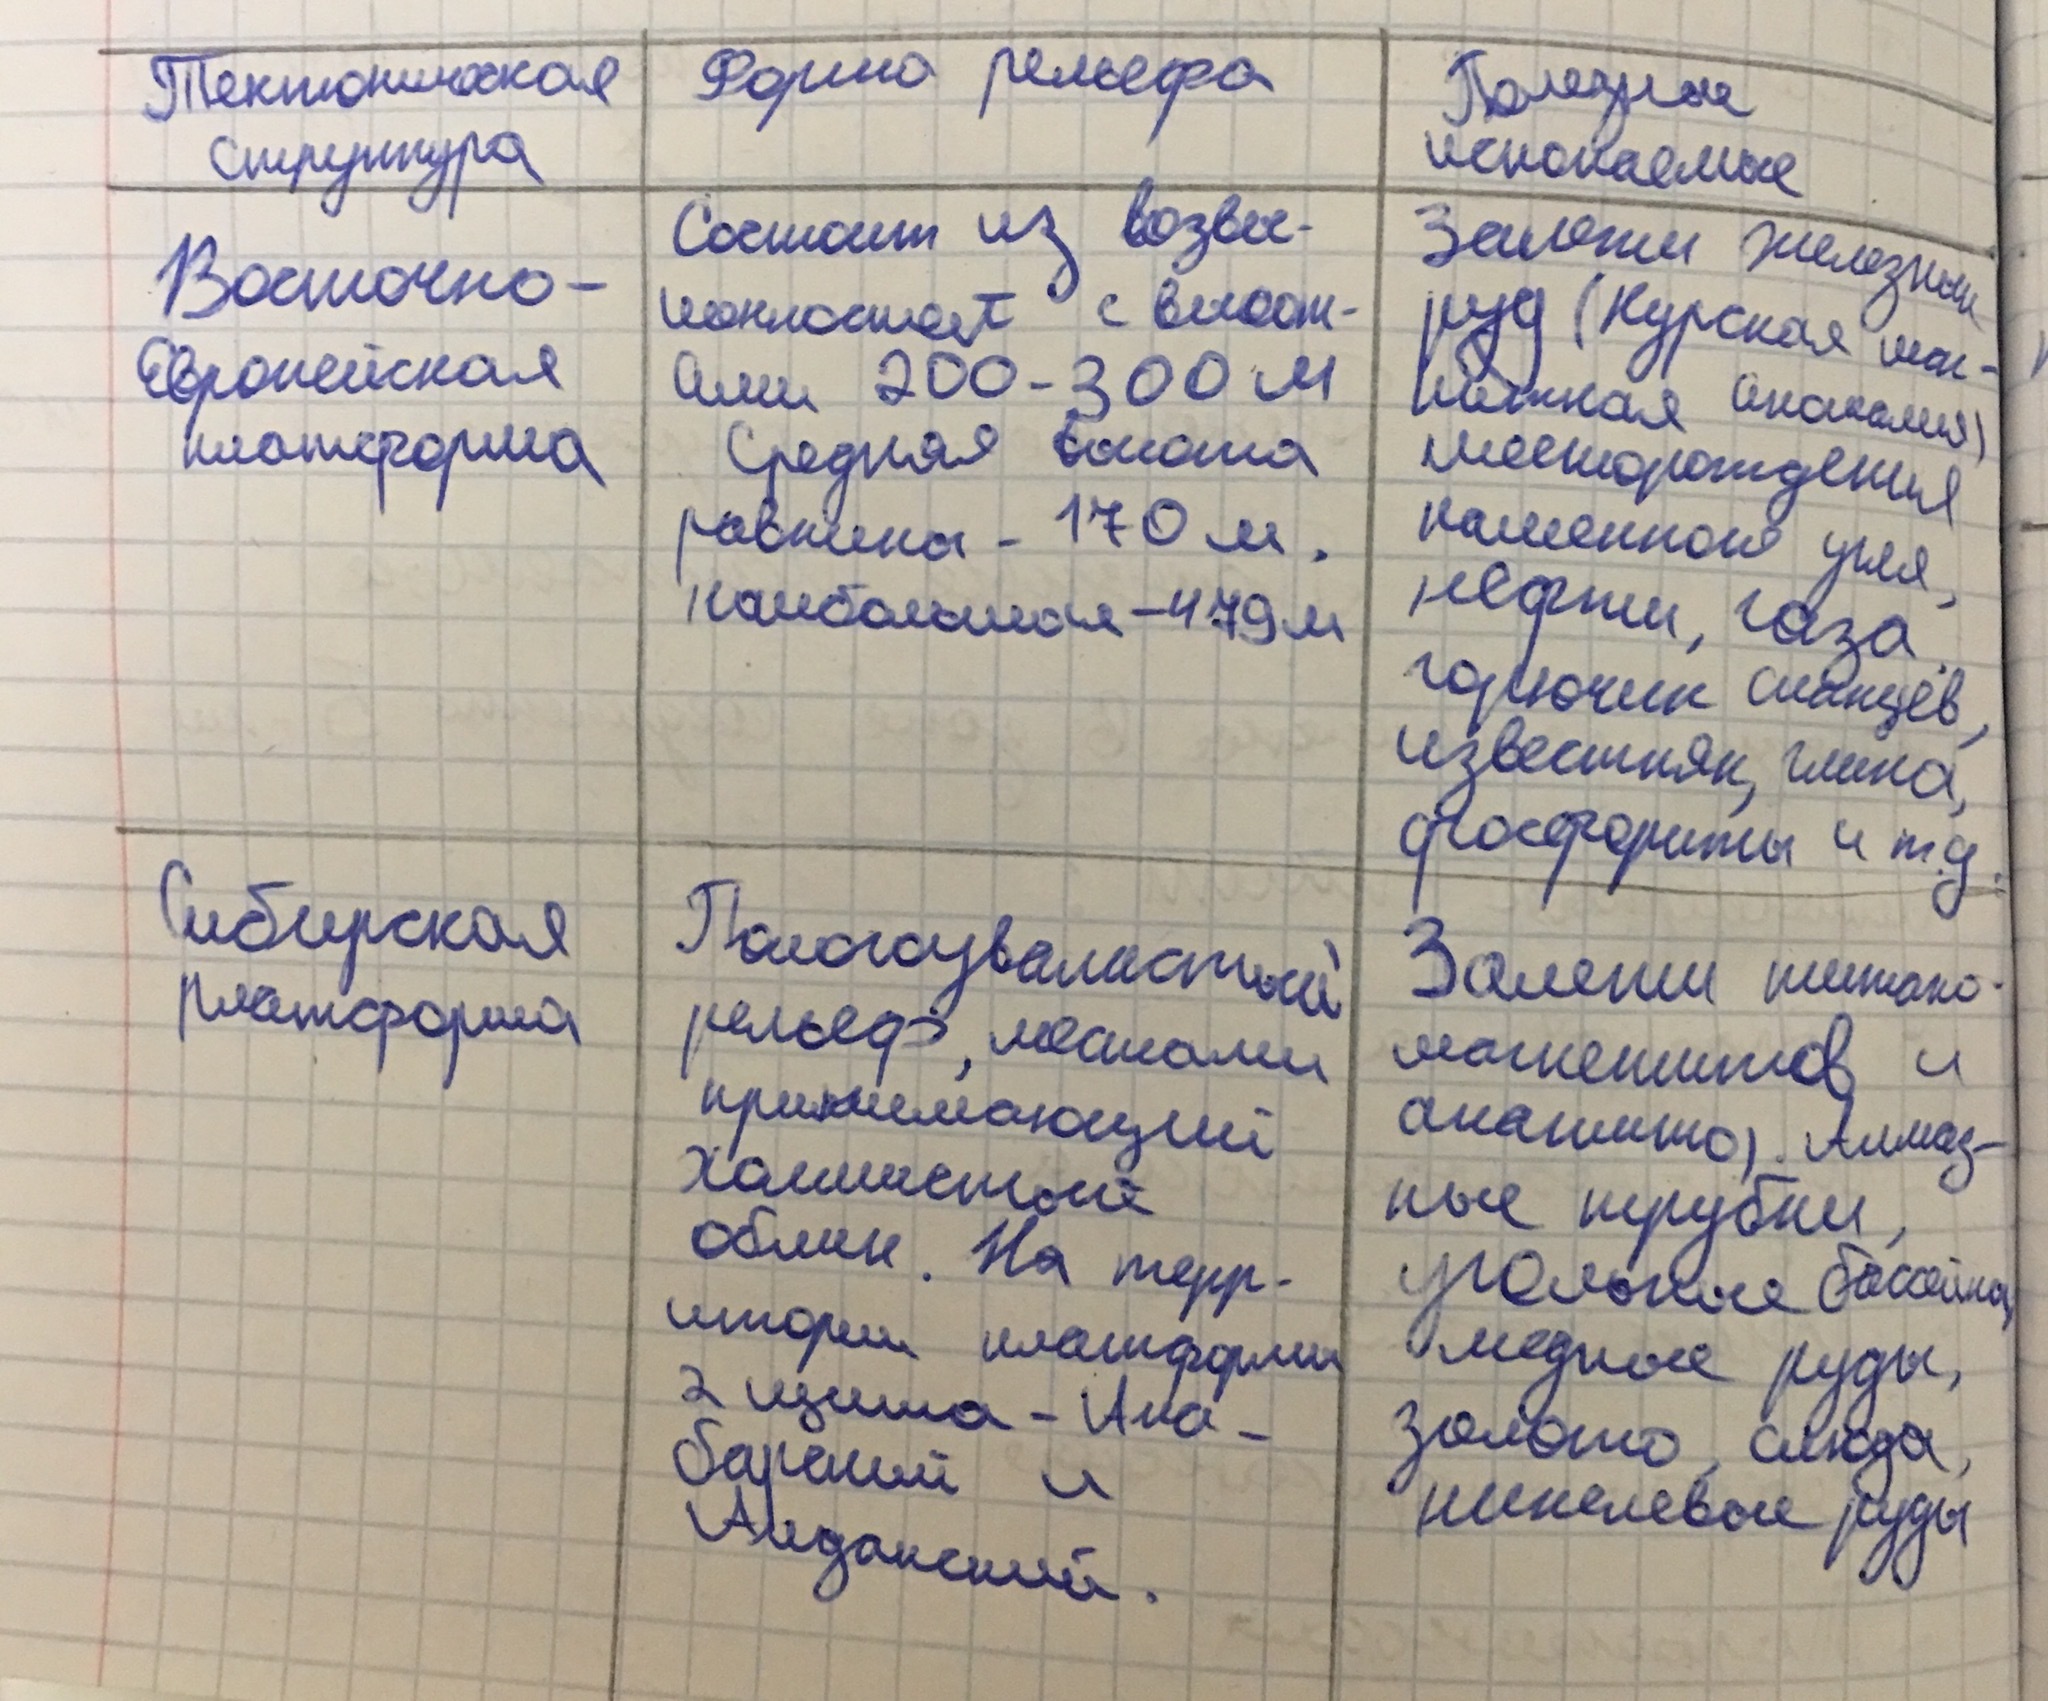 Тектоническая
структура
Форма рельефа
Полезные
ископаемые
Восточно-
Европейская
платформа
Состоит из возвы-
шенностей с высот-
ами 200-300 м
Средняя высота
равнина - 170 м.
наибольшая - 479 м
Залежи железных
руд (Курская маг-
нитная аномалия)
месторождения
каменного угля,
нефти, газа,
горючих сланцев,
известняк, глина,
фосфориты и т.д.
Сибирская
платформа
Пологоувалистый
рельеф, местами
принимающий
холмистый
облик. На терр-
итории платформы
2 щита - Ана-
барский и
Алданский.
Залежи титано-
магнетитов и
апатитов. Алмаз-
ные трубки,
угольные бассейны,
медные руды,
золото, слюда,
никелевые руды